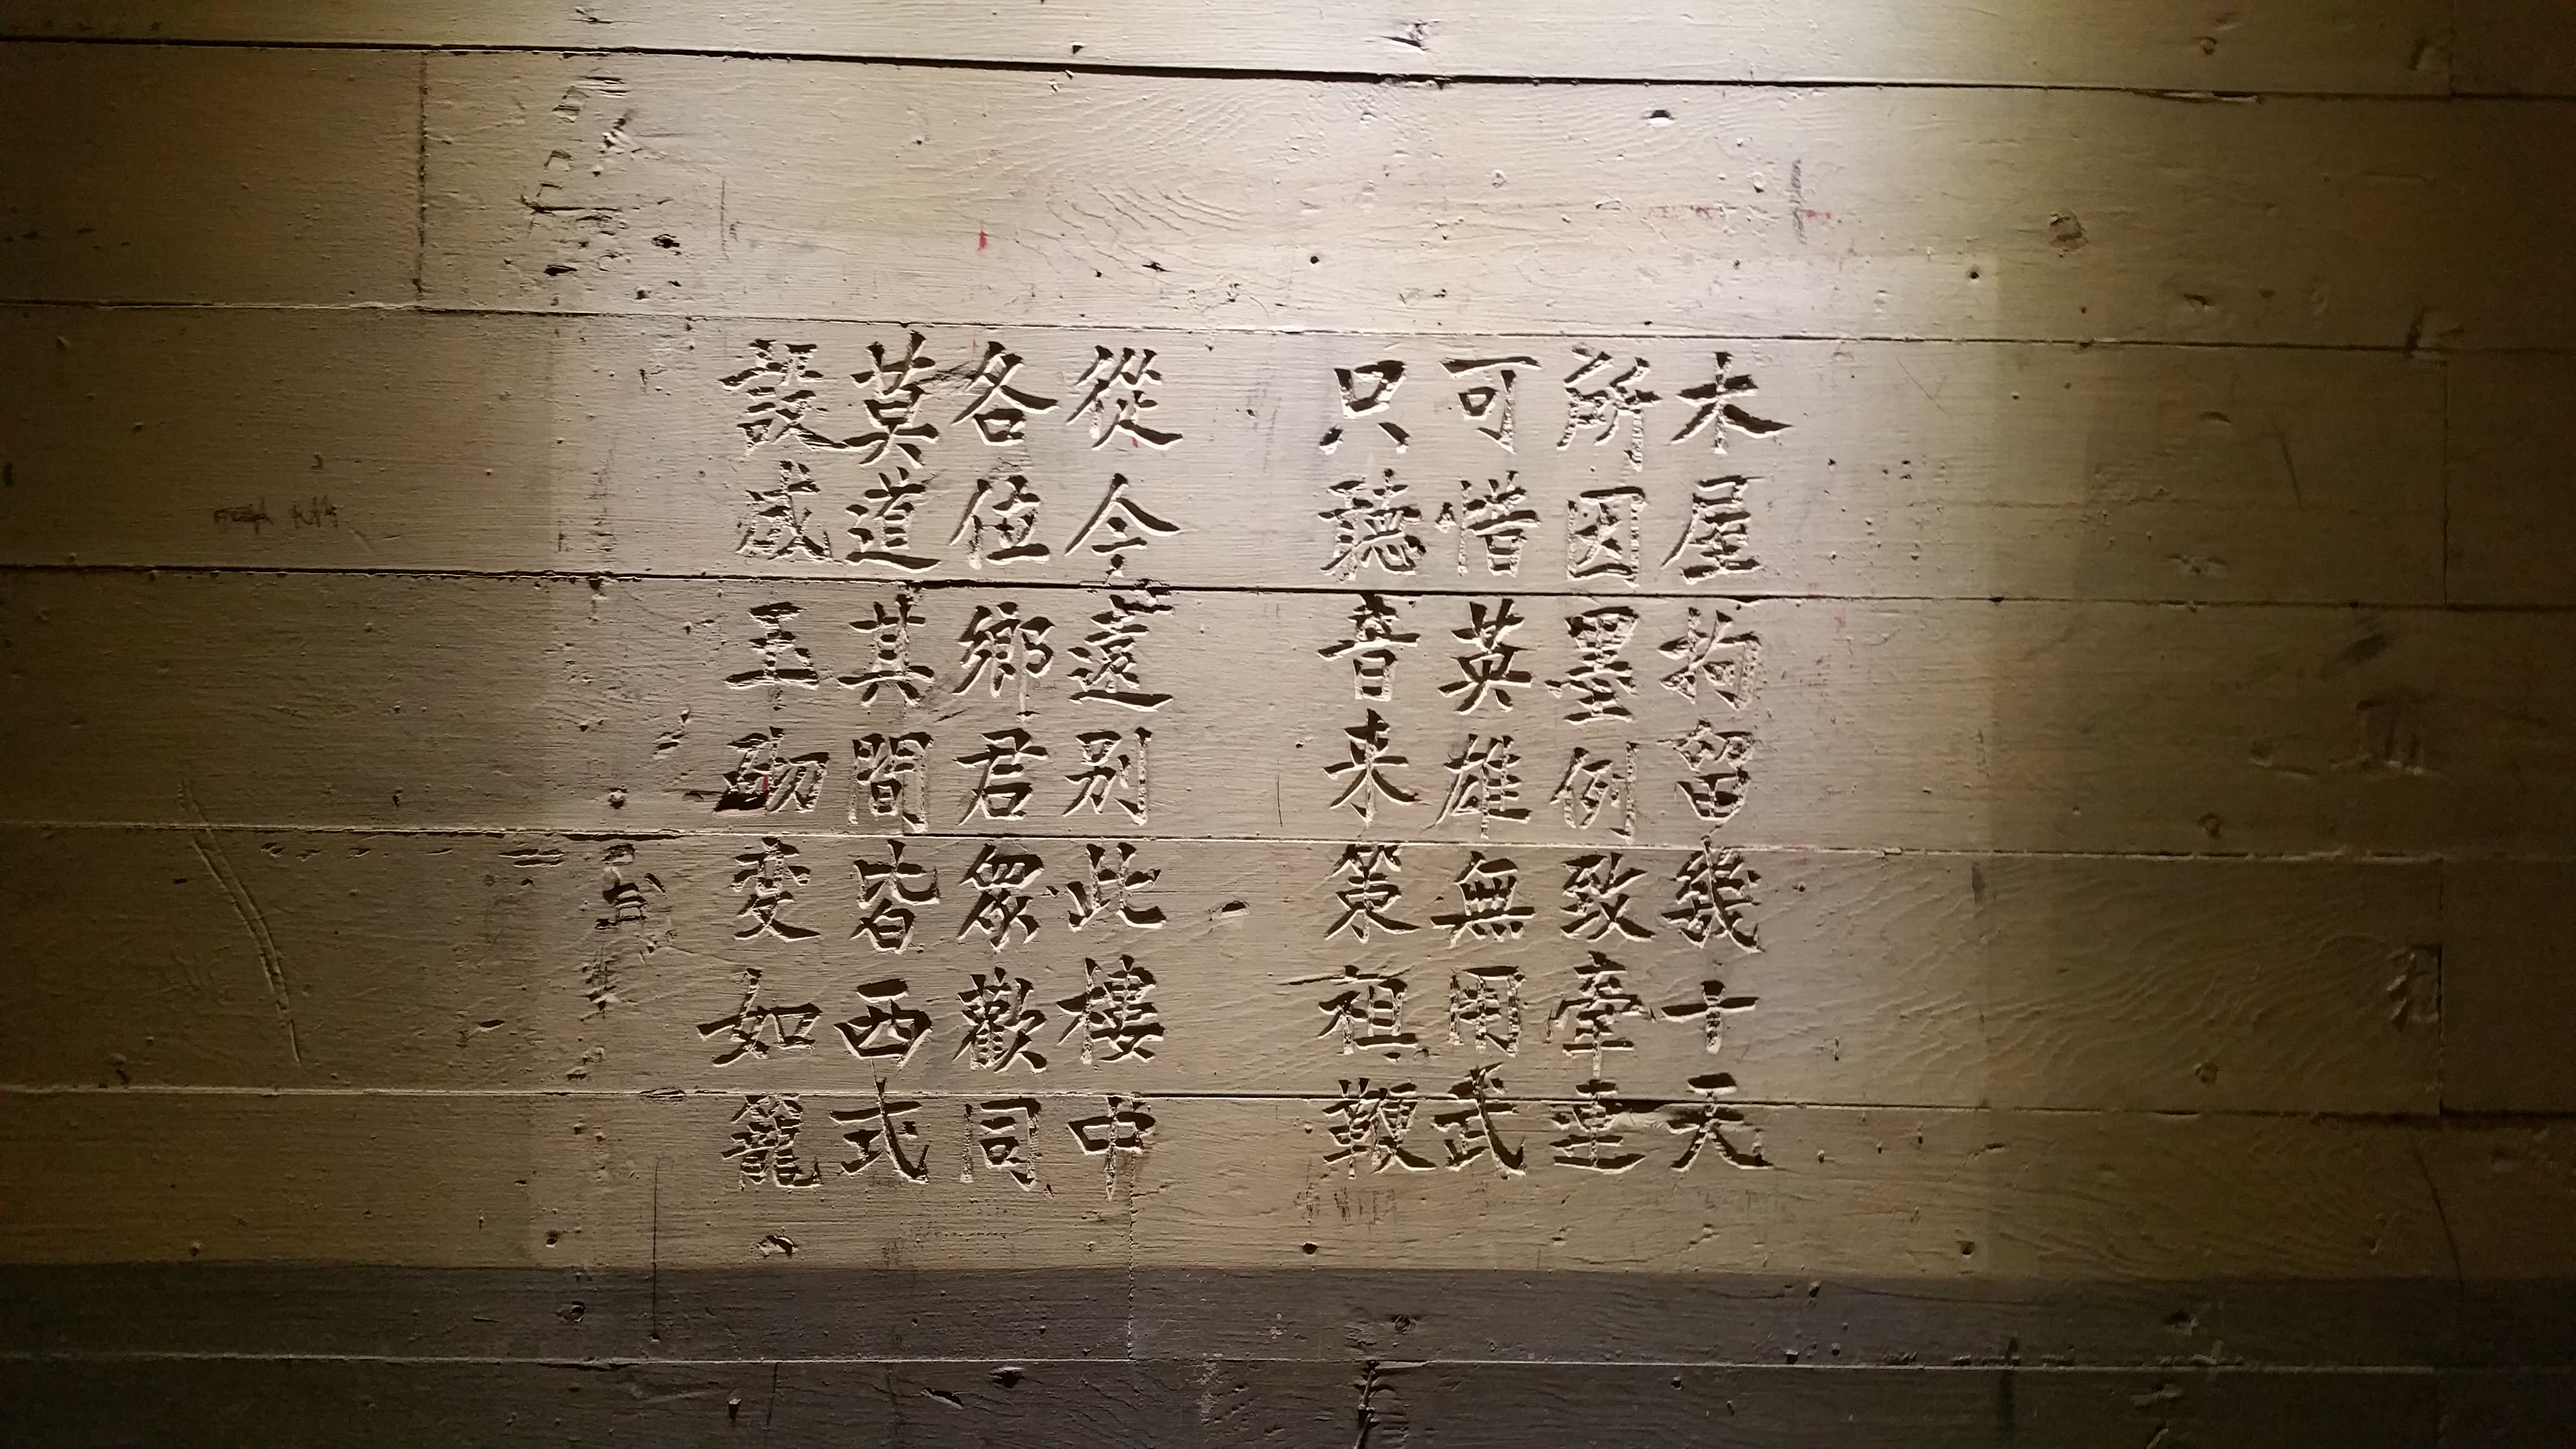 木屋拘留幾十天
所因墨例致牽連
可惜英雄無用武
只聽音来策祖鞭
從今遠别此樓中
各位鄉君眾歡同
莫道其間皆西式
設成玉砌变如籠